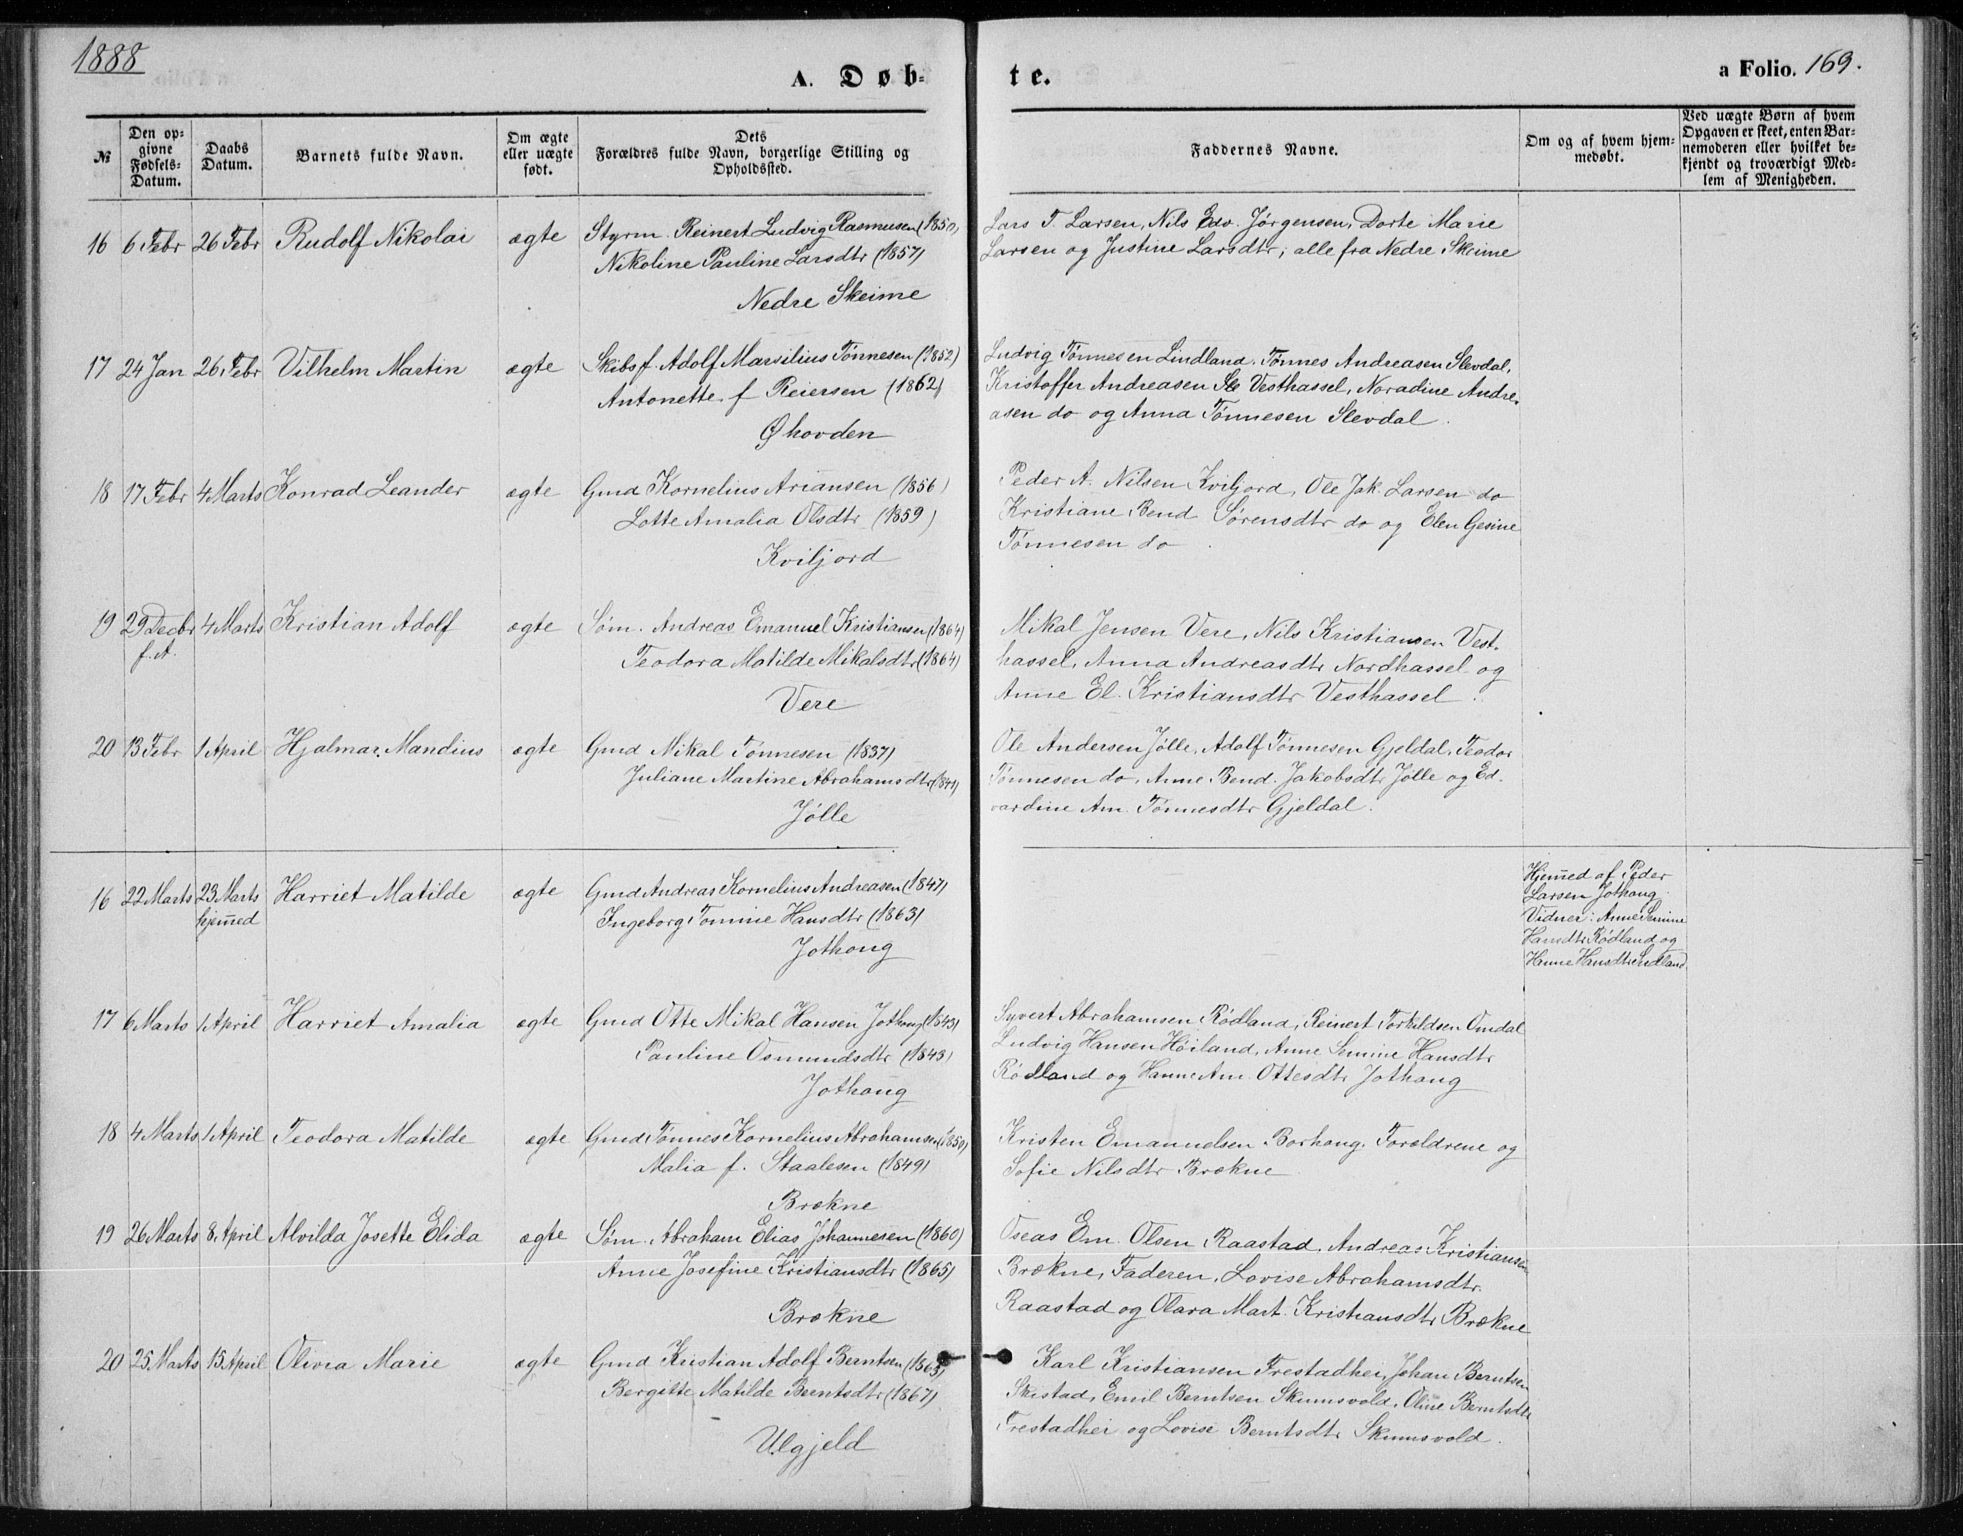 1888
A. Døb-
te.
a Folio. 169.
№
Den op-
givne
Fødsels-
Datum.
Daabs
Datum.
Barnets fulde Navn.
Om ægte
eller uægte
født.
Dets
Forældres fulde Navn, borgerlige Stilling og
Opholdssted.
Faddernes Navne.
Om og af hvem hjem-
medøbt.
Ved uægte Børn af hvem
Opgaven er skeet, enten Bar-
nemoderen eller hvilket be-
kjendt og troværdigt Med-
lem af Menigheden.
16 6 Febr 26 Febr Rudolf Nikolai ægte Styrm. Reinert Ludvig Rasmusen (1850)
Nikoline Pauline Larsdtr (1857)
Nedre Skeime
Lars T. Larsen, Nils Edv. Jørgensen, Dorte Marie
Larsen og Justine Larsdtr, alle fra Nedre Skeime
17 24 Jan 26 Febr Vilhelm Martin ægte Skibsf. Adolf Marsilius Tønnesen (1852)
Antonette f Reiersen (1862)
Øhovden
Ludvig Tønnesen Lindland, Tønnes Andreasen Slevdal,
Kristoffer Andreasen Sle Vesthassel, Noradine Andre-
asen do og Anna Tønnesen Slevdal.
18 17 Febr 4 Marts Konrad Leander ægte Gmd Kornelius Ariansen (1856)
Lotte Amalia Olsdtr (1859)
Kviljord
Peder A. Nilsen Kviljord, Ole Jak. Larsen do
Kristiane Bend Sørensdtr do og Elen Gesine
Tønnesen do.
19 29 Decbr 4 Marts Kristian Adolf ægte Søm. Andreas Emanuel Kristiansen (1864)
f. A.
Teodora Matilde Mikalsdtr (1864)
Vere
Mikal Jensen Vere, Nils Kristiansen Vest-
hassel, Anna Andreasdtr Nordhassel og
Anne El. Kristiansdtr Vesthassel.
20 13 Febr 1 April Hjalmar Mandius ægte Gmd Mikal Tønnesen (1837)
Juliane Martine Abrahamsdtr (1841)
Jølle
Ole Andersen Jølle, Adolf Tønnesen Gjeldal, Teodor
Tønnesen do, Anne Bend. Jakobsdtr Jølle og Ed-
vardine Am. Tønnesdtr Gjeldal.
16 22 Marts 23 Marts Harriet Matilde ægte Gmd Andreas Kornelius Andreasen (1847)
hjemed
Ingeborg Tomine Hansdtr (1863)
Jothong
Hjemed af Peder
Larsen Jothong.
Vidner: Anne Semine
Hansdtr Rødland og
Hanne Hansdtr
17 6 Marts 1 April Harriet Amalia ægte Gmd Otte Mikal Hansen Jothong (1843)
Pauline Osmundsdtr (1843)
Jothong
Syvert Abrahamsen Rødland, Reinert Torkildsen Omdal
Ludvig Hansen Høiland, Anne Semine Hansdtr
Rødland og Hanne Am. Ottesdtr Jothong
18 4 Marts 1 April Teodora Matilde ægte Gmd Tønnes Kornelius Abrahamsen (1850)
Malia f. Staalesen (1849)
Brekne
Kristen Emanuelsen Borhong, Foreldrene og
Sofie Nilsdtr Brekne
19 26 Marts 8 April Alvilda Josette Elida ægte Søm. Abraham Elias Johannesen (1860)
Anne Josefine Kristiansdtr (1865)
Brekne
Oseas Em. Olsen Raastad, Andreas Kristiansen
Brekne, Faderen, Lovise Abrahamsdtr
Raastad og Olara Mart. Kristiansdtr Brekne
20 25 Marts 15 April Olivia Marie ægte Gmd Kristian Adolf Berntsen (1863)
Bergitte Matilde Berntsdtr (1867)
Ulgjeld
Karl Kristiansen Frestadhei, Johan Berntsen
Skistad, Emil Berntsen Skumsvold, Oline Berntsdtr
Frestadhei og Lovise Berntsdtr Skumsvold.